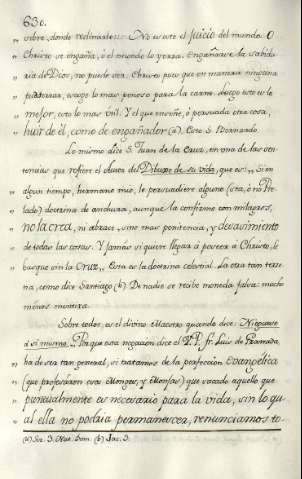 630.
" sobre, donde reclinarlo: No es este el juicio del mundo. O
" Christo se engaña, ó el mundo lo yerra. Engañarse la Sabidu
" ria de Dios, no puede ser. Christo pues que en manera ninguna
" escoge lo mas penoso para la carne: luego esto es lo
" mejor, esto lo mas util. Y el que enseñe, ó persuada otra cosa,
" huir de él, como de engañador (a). Esto S. Bernardo.
Lo mismo dice S. Juan de la Cruz, en una de las sen-
tencias que refiere el Autor del Dibuxo de su vida, que es: "Si en
" algun tiempo, hermano mio, le persuadiere alguno (sea, ó no Pre
" lado) doctrina de anchura, aunque la confirme con milagros,
" no la crea, ni abrace, sino mas penitencia, y desasimiento
" de todas las cosas. Y jamás si quiere llegar á poseer á Christo, le
" busque sin la Cruz." Esta es la doctrina celestial. La otra tan terre
na, como dice Santiago (b). De nadie se recibe moneda falsa: mucho
menos
Sobre todos, es el divino Maestro quando dice: Nieguese
á sí mismo. Porque esta negacion dice el V. P. Fr. Luis de Granada
ha de ser tan general, si tratamos de la perfeccion Evangelica
(que professaron esos Monges, y Monjas) que sacado aquello que
puntualmente es necesario para la vida, sin lo qu
al ella no podria permanecer, renunciamos to
(b) Jac. 3.